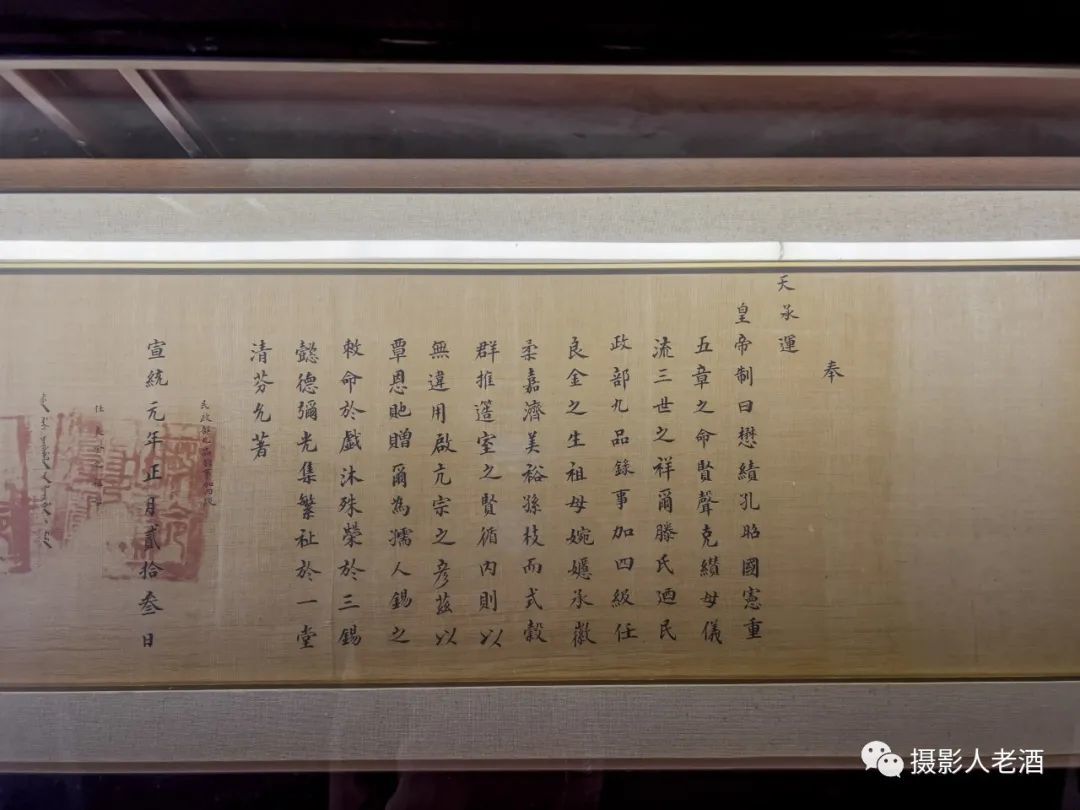 奉
天承運
皇帝制曰懋績孔昭國憲重
五章之命賢聲克纘母儀
流三世之祥爾滕氏廼民
政部九品錄事加四級任
良金之生祖母婉嫕承徽
柔嘉濟美裕孫枝而式穀
群推簉室之賢循內則以
無違用啟亢宗之彥茲以
覃恩貤贈爾為孺人錫之
敕命於戲沐殊榮於三錫
懿德彌光集繁祉於一堂
清芬允著
宣統元年正月貳拾叁日
民政部九品錄事加四級
任良金之祖母
摄影人老酒